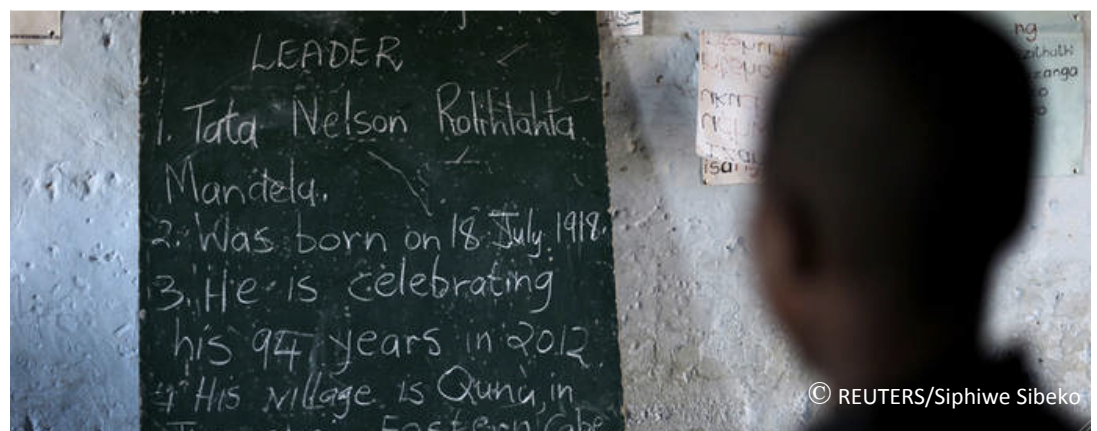 LEADER
1. Tata Nelson Rolihlahla
Mandela.
2. Was born on 18 July 1918.
3. He is celebrating
his 94 years in 2012.
4 His village is Qunu, in
Eastern Cape
ng
zithathi
zanga
o
o
isang
© REUTERS/Siphiwe Sibeko